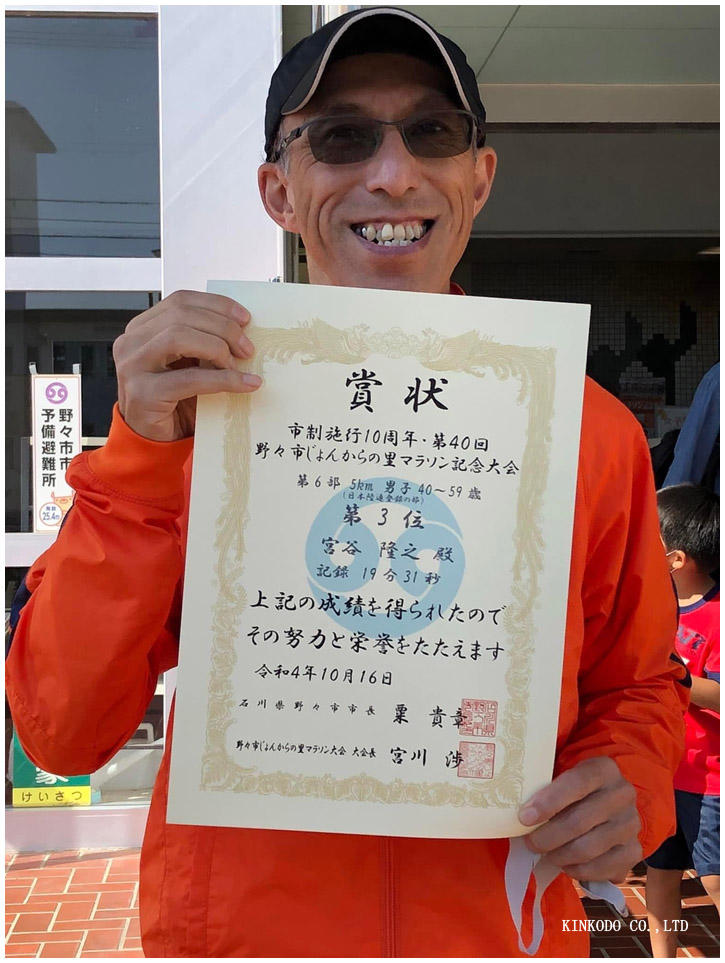 賞状
市制施行10周年・第40回
野々市じょんからの里マラソン記念大会
第6部 5km 男子 40～59歳
(日本陸連登録の部)
第3位
宮谷 隆之 殿
記録 19分31秒
上記の成績を得られたので
その努力と栄誉をたたえます
令和4年10月16日
石川県野々市市長 粟 貴章
野々市じょんからの里マラソン大会 大会長 宮川 渉
野々市市
予備避難所
海抜
25.4m
けいさつ
KINKODO CO.,LTD